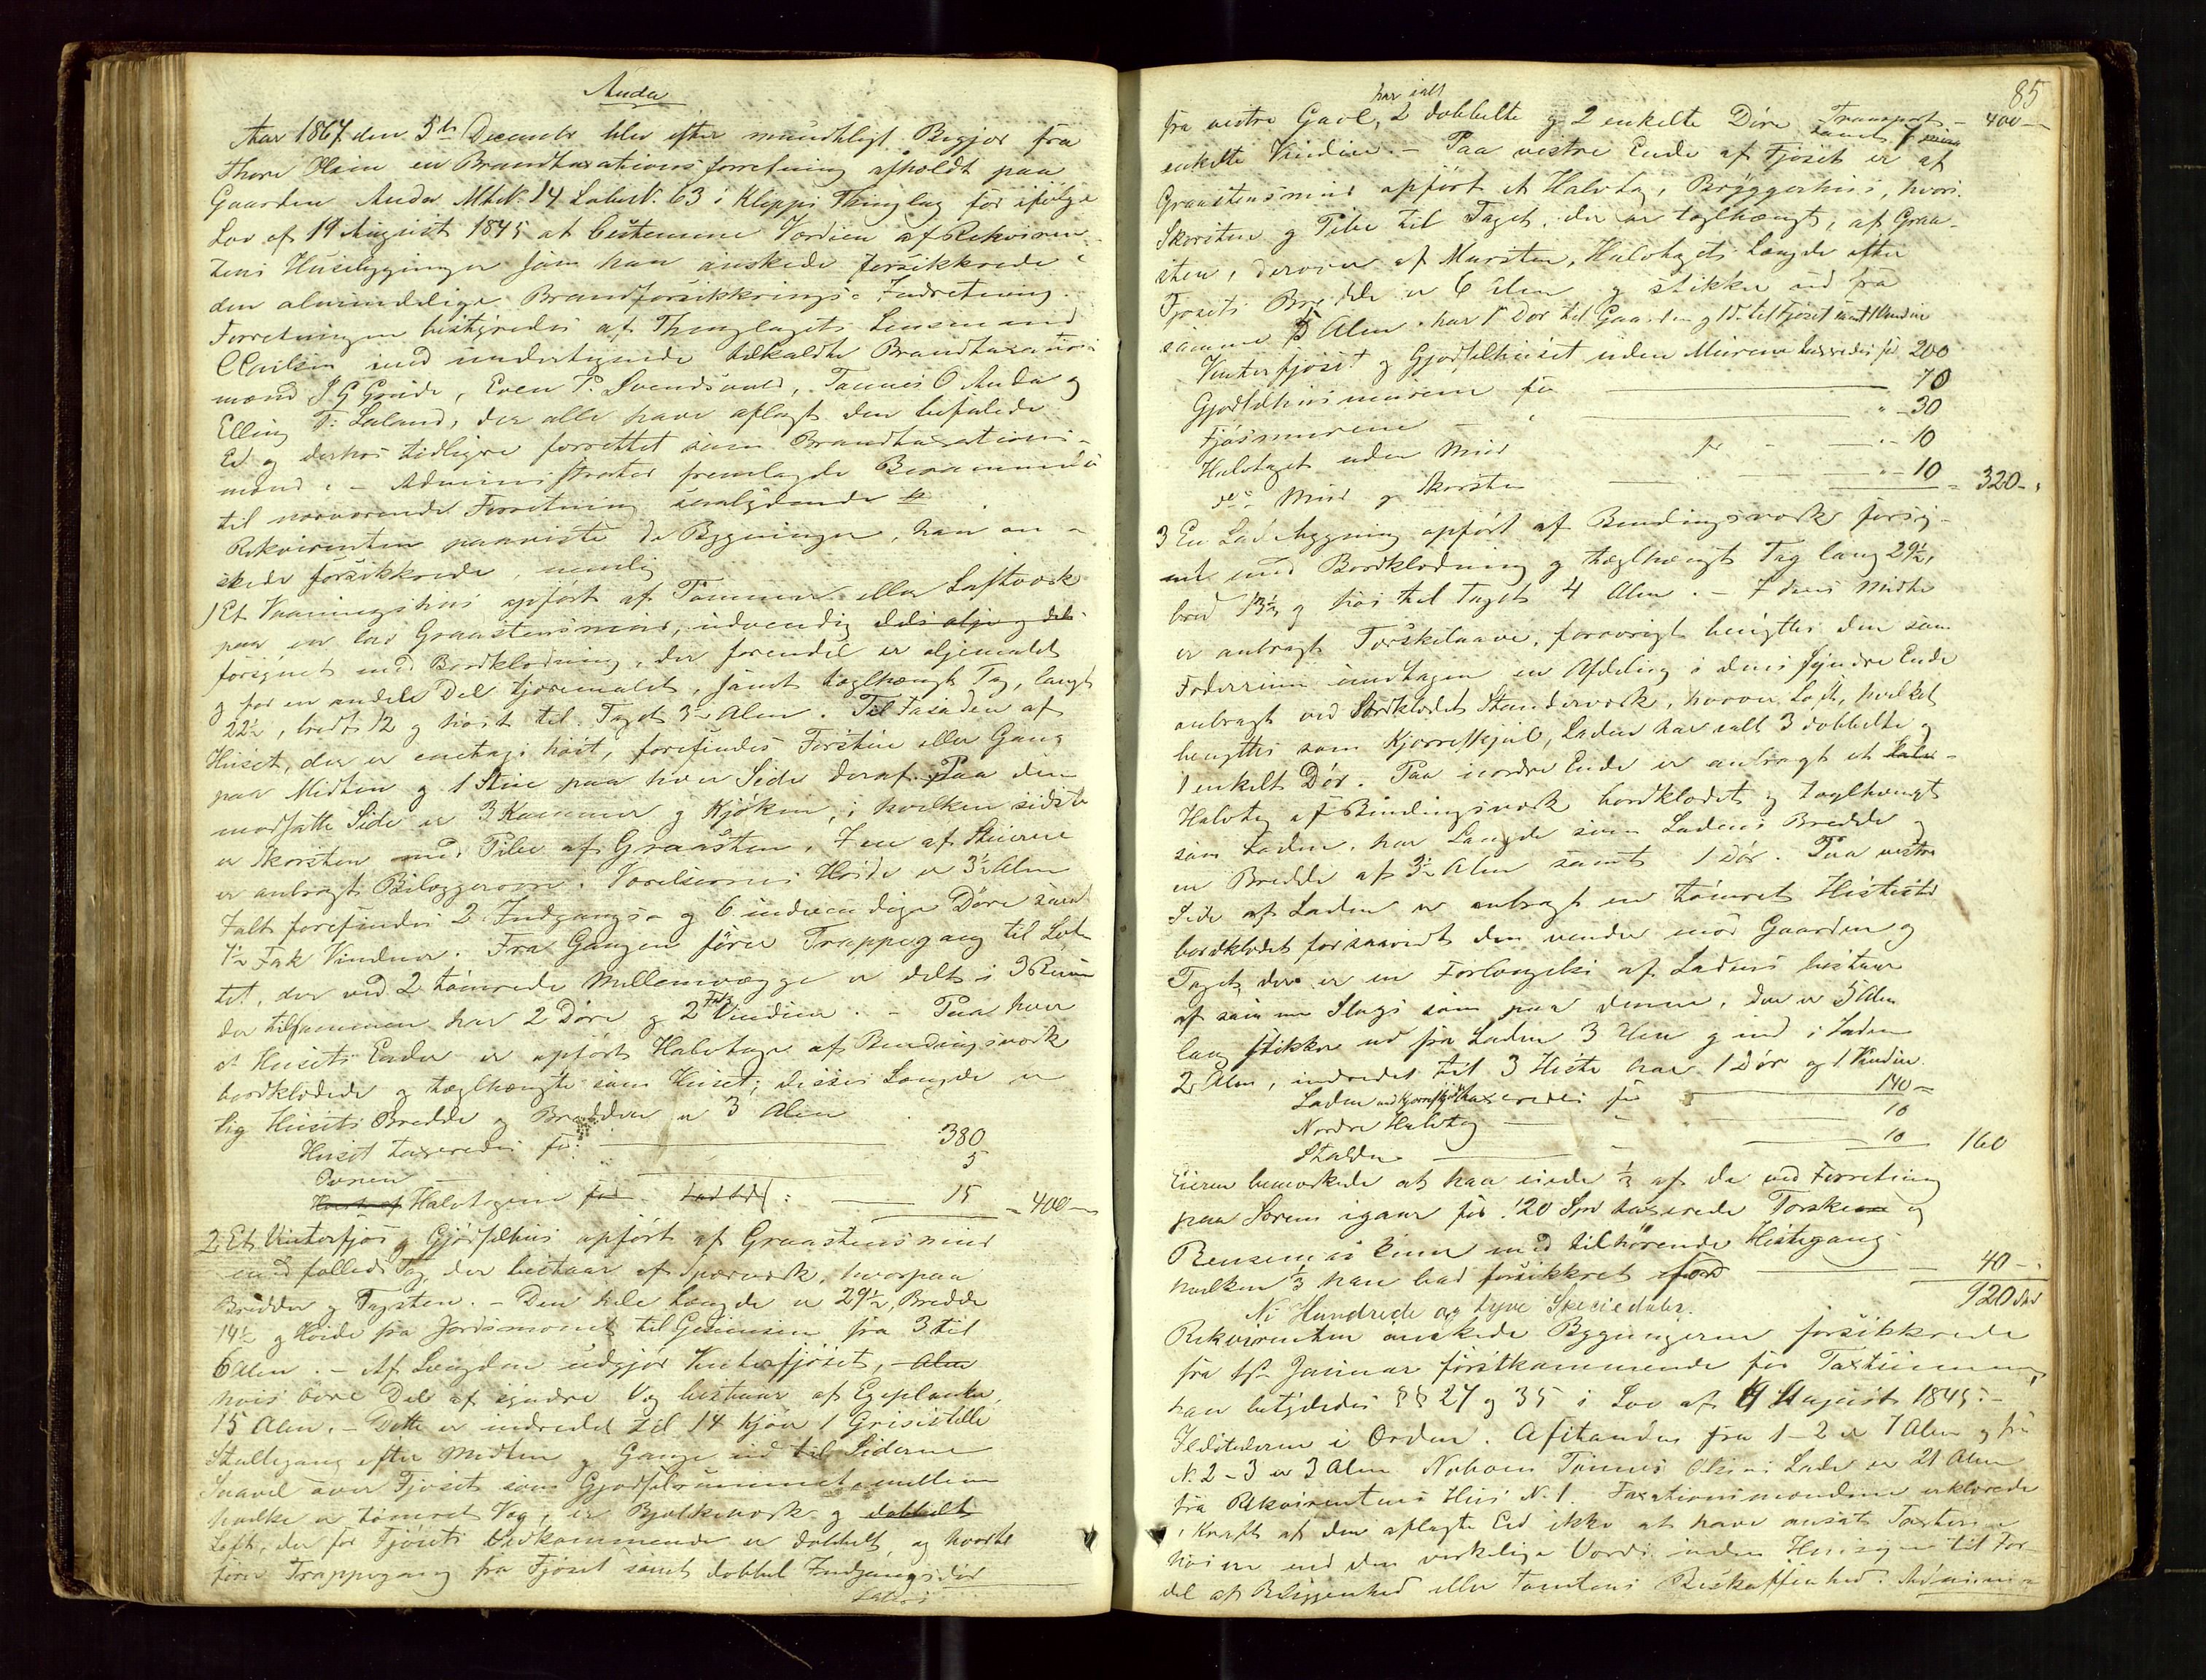 Anda
Aar 1867 den 5te December blev efter mundtligt Begjær fra
Thore Heim en Brandtaxationsforretning afholdt paa
Gaarden Anda MtN. 14 LøbeN. 63 i Klepps Thinglag for ifølge
Lov af 19 August 1845 at bestemme Værdien af Rekviren-
tens Husebygninger som han ønskede forsikkrede i
den almindelige Brandforsikkrings-Indretning.
Forretningen bestyredes af Thinglagets Lensmand
med undertegnede tilkaldte Brandtaxations-
mænd J G Grude, Even P. Svendsvold, Tønnes O Anda og
Elling T. Laland, der alle have aflagt den befalede
Ed og derhos tidligere forrettet som Brandtaxations-
mænd. - Administrator fremlagde Berammelse
til nærværende Forretning saalydende
Rekvirenten paaviste de Bygninger, han øn-
skede forsikkrede, nemlig
1 Et Vaaningshus opført af Tømmer eller Laftværk
paa en lav Graastensmuur, udvendig dels olje og dels
forsynet med Bordklædning, der forendel er oljemalet
og for en anden Del tjæremalet, samt taglhængt Tag, langt
22½, bredt 12 og høit til Taget 3½ Alen. Til Fasaden af
Huset, der er enetages høit, forefindes Forstue eller Gang
paa Midten og 1 Stue paa hver Side deraf. Paa den
modsatte Side er 3 Kammer og Kjøken, i hvilken sidste
er Skorsten med Pibe af Graasten. I en af Stuerne
er anbragt Bilæggerovn. Værelsernes Høide er 3½ Alen
Ialt forefindes 2 Indgangs- og 6 indvendige Døre samt
7½ Fak Vinduer. Fra Gangen fører Trappegang til Lof-
tet, der ved 2 tømrede Mellemvægge er delt i 3 Rum
der tilsammen har 2 Døre og 2 Fak Vinduer. - Paa hver
af Husets Ender er opført Halvtage af Bindingsværk
bordklædede og taglhængte som Huset; disses Længde er
lig Husets Bredde og Bredden er 3 Alen
Huset taxeredes for: 380
Ovnen 5
Halvtagene 15 - 400 -
2 Et Vinterfjøs og Gjødselhus opført af Graastensmuur
med falled Tag, der bestaar af Sperreværk, hvorpaa
Brædder og Tagsten. - Den hele Længde er 29½, Bredde
14½ og Høide fra Jordsmonet til Gesimsen fra 3 til
6 Alen. - Af Længden udgjør Vinterfjøset, Alen
hvis øvre Del af søndre Væg bestaar af Egeplanker,
15 Alen. - Dette er indredet til 14 Kjør 1 Grisestelle
Stallegang efter Midten og Gange ud til Siderne
Saavel over Fjøset som Gjødselrummet, mellem
hvilke er tømret Væg, er Bjelkeværk og dobbelt
Loft, der for Fjøsets Vedkommende er dobbelt, og hvortil
fører Trappegang fra Fjøset samt dobbel Indgangsdør
85
fra vestre Gavl, har ialt 2 dobbelte og 2 enkelte Døre samt Transport - 400 -
enkelte Vinduer. - Paa vestre Ende af Fjøset er af
Graastensmuur opført et Halvtag, Bryggerhus, hvori
Skorsten og Pibe til Taget, der er taglhængt, af Graa-
sten, derover af Mursten, Halvtagets Længde efter
Fjøsets Bredde er 6 Alen og stikker ud fra
samme 5 Alen. har 1 Dør til Gaarden og 1 D. til Fjøset samt 1 Vindue
Vinterfjøset og Gjødselhuset uden Murene taxeredes for 200
Gjødselhusmurene for 70
Fjøsmurene " 30
Halvtaget uden Muur for " 10
do. Muur og Skorsten " 10 - 320 -
3 En Ladebygning opført af Bindingsværk forsy-
net med Bordklædning og taglhængt Tag lang 29½,
bred 13½ og høi til Taget 4 Alen. - I dens Midte
er anbragt Tærskelaave, forøvrigt benyttes den som
Foderrum undtagen en Afdeling i dens søndre Ende
anbragt ved Bordklædet Standerværk, hvorover Loft, hvilket
benyttes som Kjørreskjul, Laden har ialt 3 dobbelte og
1 enkelt Dør. Paa nordre Ende er anbragt et Halv-
Halvtag af Bindingsværk bordklædet og taglhængt
som Laden, har Længde som Ladens Bredde og
en Bredde af 3½ Alen samt 1 Dør. Paa vestre
Side af Laden er anbragt en tømret Hestestal
bordklædet forsaavidt den vender mod Gaarden og
Taget, der er en Forlængelse af Ladens bestaar
af samme Slags som paa denne, der er 5 Alen
lang stikker ud fra Laden 3 Alen og ind i Laden
2 Alen, indredet til 3 Heste har 1 Dør og 1 Vindue
Laden med Kjørreskjul taxeredes for 140 -
Nordre Halvtag " 10
Stalden 10 160
Eieren bemærkede at han eiede ⅓ af de ved Forretning
paa Særem igaar for 120 Spd taxerede Tærske og
Rensemaskiner med tilhørende Hestegang
hvilken ⅓ han bad forsikkret for 40 -
920 Spd
Ni Hundrede og tyve Speciedaler.
Rekvirenten ønskede Bygningerne forsikkrede
fra 1ste Januar førstkommende for Taxtsummen,
han betydedes §§ 27 og 35 i Lov af 19 August 1845. -
Ildstederne i Orden. Afstanden fra 1-2 er 7 Alen og fra
N. 2-3 er 3 Alen Naboen Tønnes Olsens Lade er 21 Alen
fra Rekvirentens Hus N. 1. Taxationsmændene erklærede
i Kraft af den aflagte Ed ikke at have ansat Taxten
høiere end den virkelige Værdi uden Hensyn til For-
del af Beliggenhed eller Tomtens Beskaffenhed. Admini-